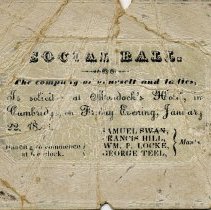 SOCIAL BALL.
The company of yourself and ladies,
Is solicited at Murdock's Hotel, in
Cambridge, on Friday Evening, January
22, 18
SAMUEL SWAN,
FRANCIS HILL,
WM. P. LOCKE,
GEORGE TEEL,
Man's
Dancing to commence
at o'clock.